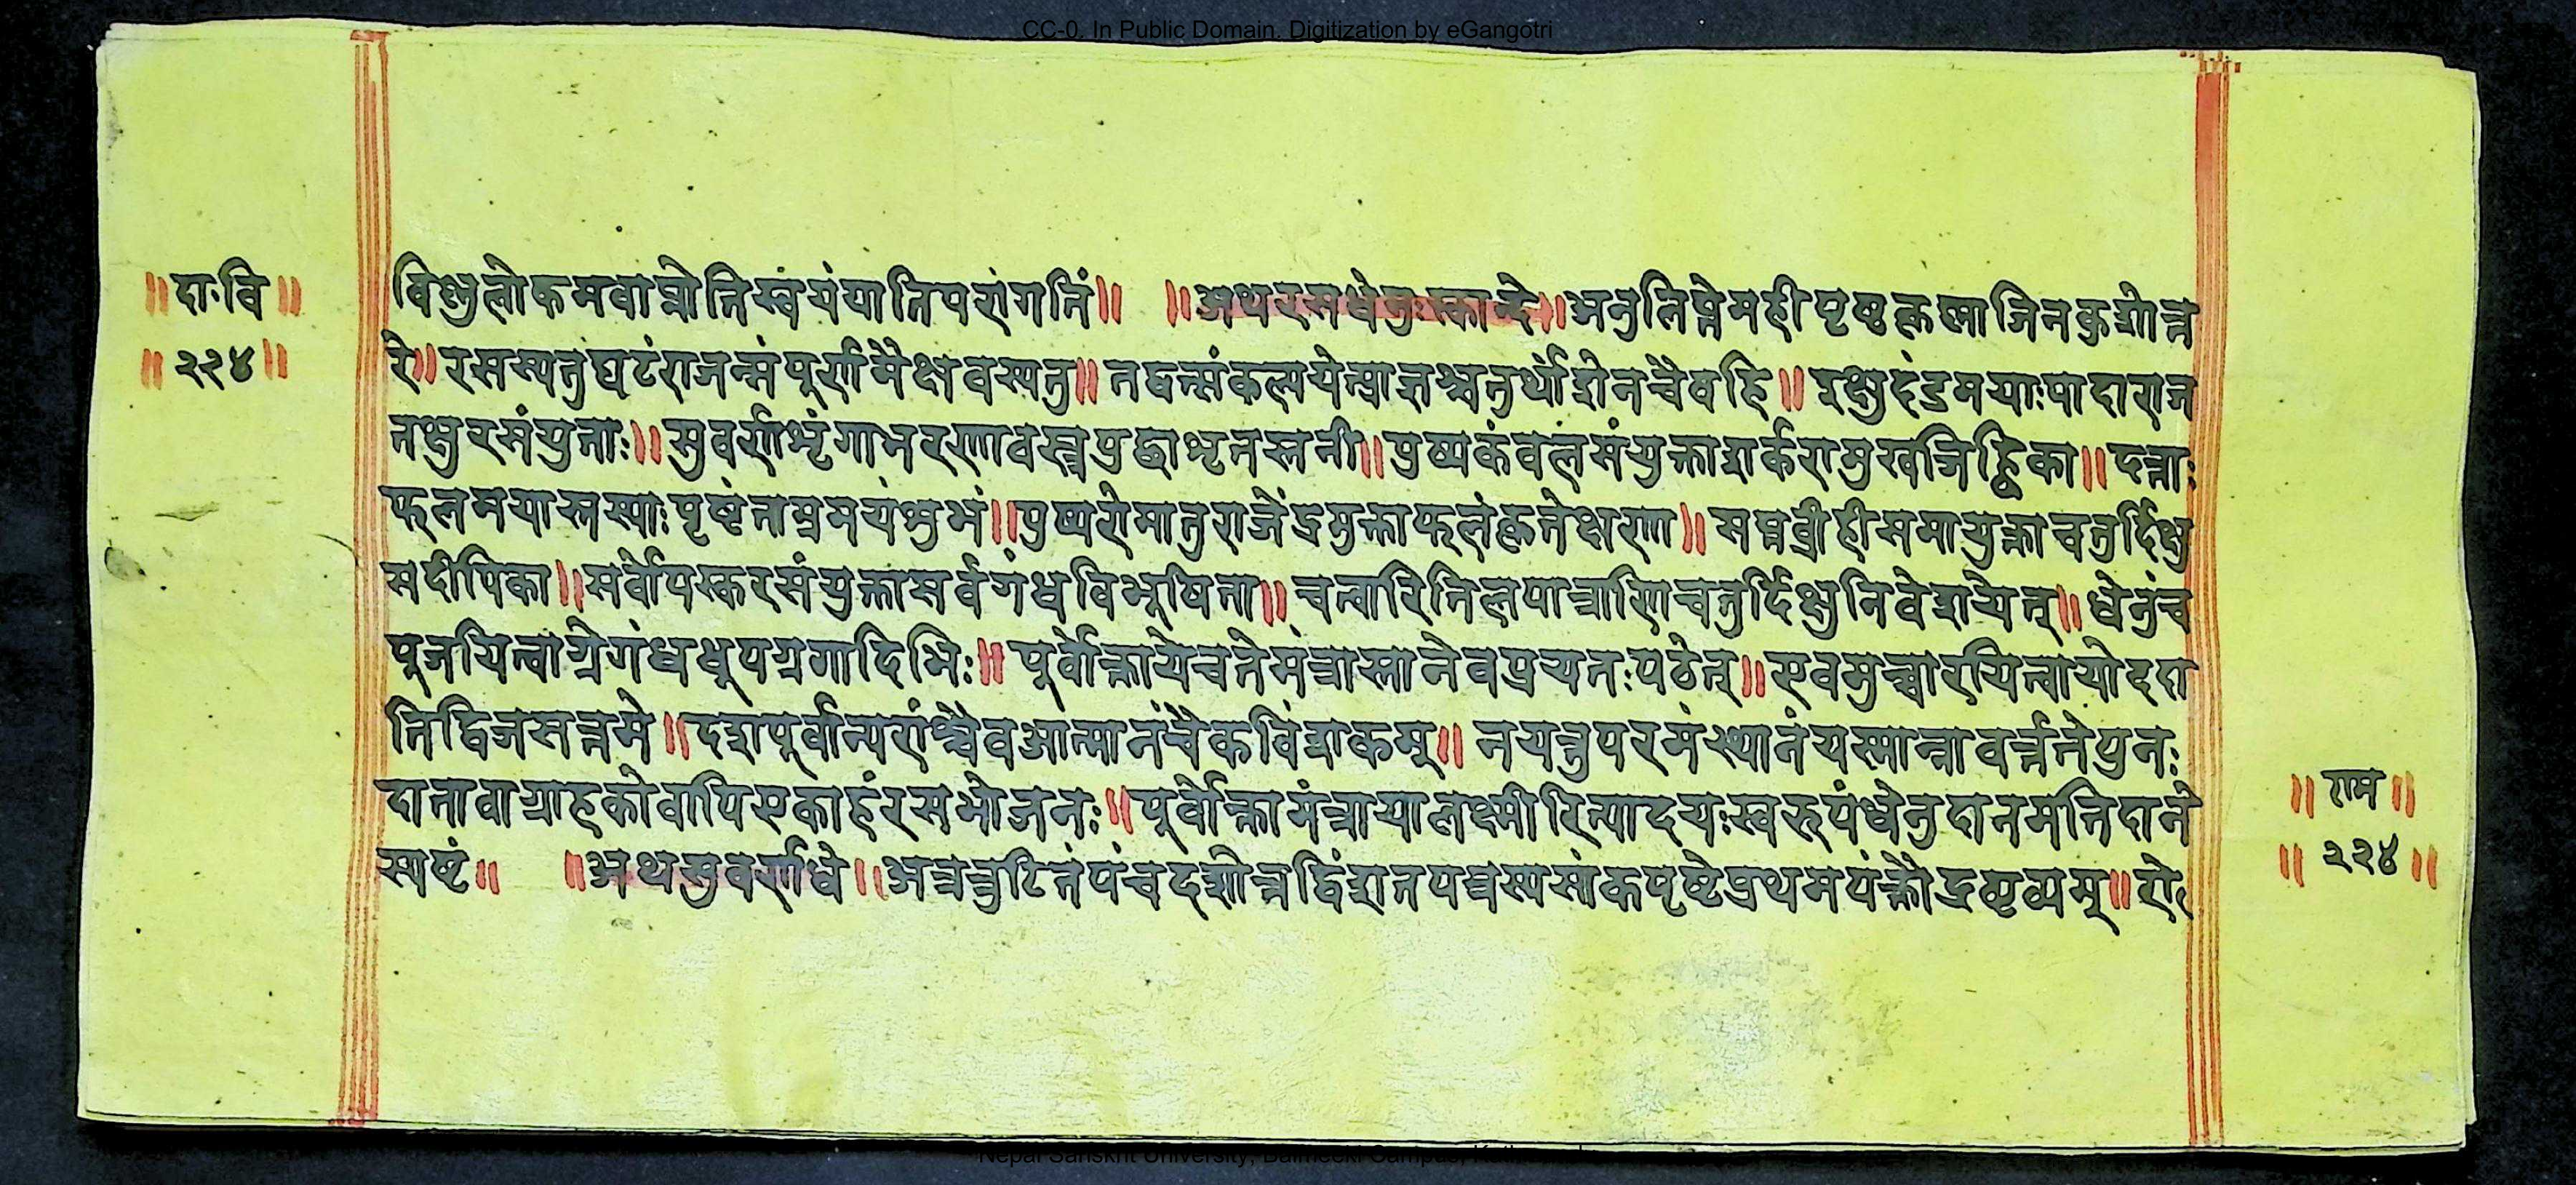 CC-0. In Public Domain. Digitization by eGangotri
॥दाःवि॥
॥२२४॥
विष्णुलोकमवाप्नोतिस्वयंयातिपरांगतिं॥ ॥अथरसधेनुःस्कान्दे॥अनुलिप्तेमहीपृष्ठेकृष्णाजिनकुशोत्त
रे॥रसस्यतुघटंराजन्संपूर्णमैक्षवस्यतु॥तद्वत्संकल्पयेत्प्राज्ञश्चतुर्थांशेनचैवहि॥इक्षुदंडमयाःपादाराज
तक्षुरसंयुताः॥सुवर्णशृंगाभरणावस्त्रपुछाधृतस्तनी॥पुष्पकंवलसंयुक्ताशर्करामुखजिह्विका॥दन्ताः
फलमयास्तस्याःपृष्ठंताम्रमयंशुभं॥पुष्परोमातुराजेंद्रमुक्ताफलकृतेक्षणा॥सप्तव्रीहीसमायुक्ताचतुर्दिक्षु
सदीपिका॥सर्वोपस्करसंयुक्तासर्वगंधविभूषिता॥चत्वारितिलपात्राणिचतुर्दिक्षुनिवेशयेत्॥धेनुंच
पूजयित्वाग्रेगंधधूपस्रगादिभिः॥पूर्वोक्तायेचतेमंत्रास्तानेवप्रयतःपठेत्॥एवमुच्चारयित्वायोददा
तिद्विजसत्तमे॥दशपूर्वान्परांश्चैवआत्मानंचैकविंशकम्॥नयन्तुपरमंस्थानंयस्मान्नावर्त्ततेपुनः
दातावाग्राहकोवापिएकाहंरसभोजनः॥पूर्वोक्तामंत्रायालक्ष्मीरित्यादयःस्वरूपंधेनुदानमतिदाने
स्पष्टं॥ ॥अथसुवर्णधे॥अत्रत्रुटितंपंचदशोत्तद्विंशतपत्रस्यसांकपृष्ठेप्रथमपंक्तौद्रष्टव्यम्॥रो
॥राम॥
॥२२४॥
Nepal Sanskrit University, Balmeeki Campus,